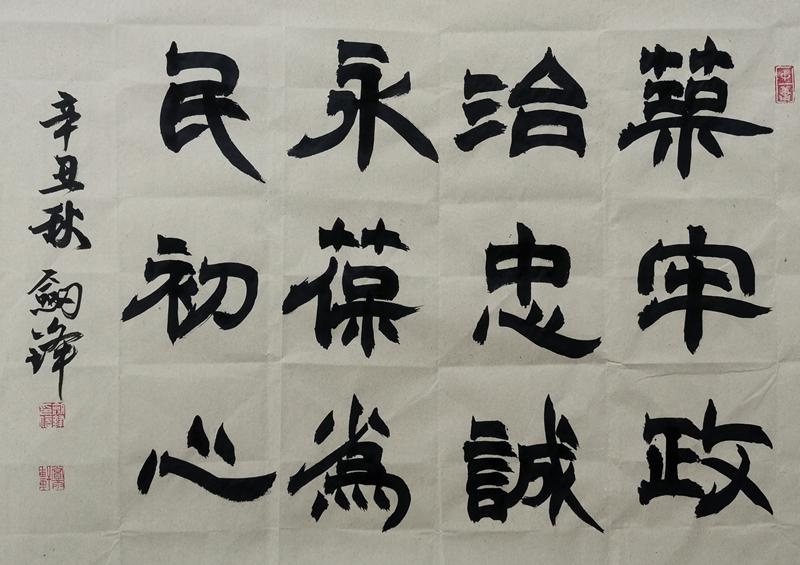 築牢政
治忠誠
永葆為
民初心
辛丑秋 劍鋒